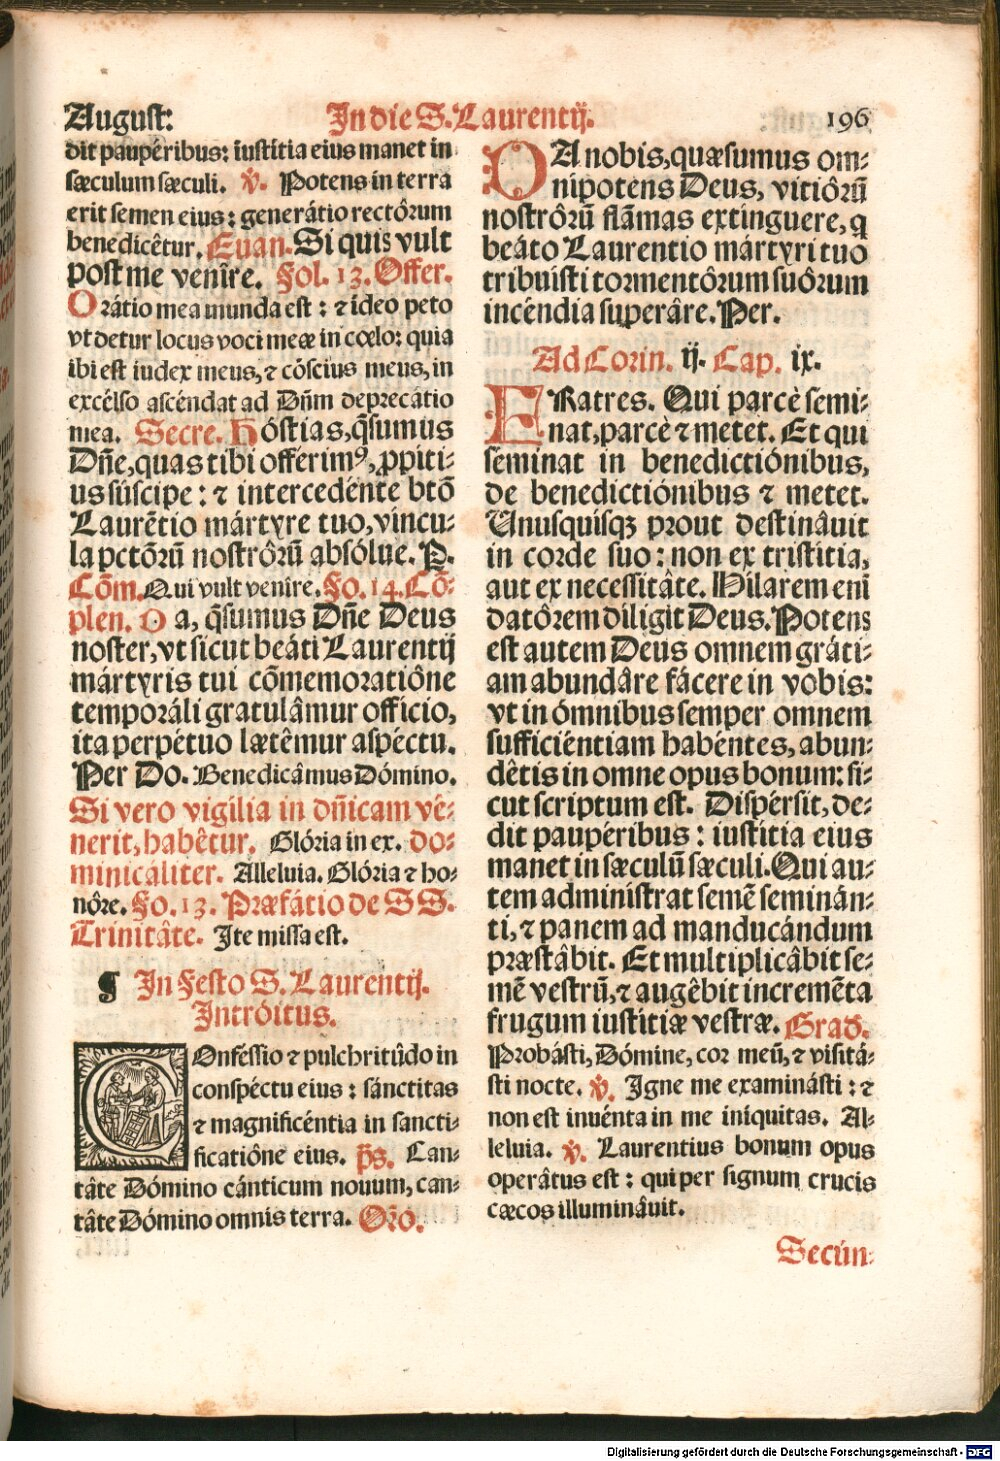 August: In die S. Laurentij. 196
dit paupéribus: iustitia eius manet in
sæculum sæculi. ℣. Potens in terra
erit semen eius: generátio rectôrum
benedicêtur. Euan. Si quis vult
post me venîre. Fol. 13. Offer.
Orátio mea munda est: ⁊ ideo peto
vt detur locus voci meæ in cœlo: quia
ibi est iudex meus, ⁊ cóscius meus, in
excélso ascéndat ad Dñm deprecâtio
mea. Secre. Hóstias, q̃sumus
Dñe, quas tibi offérimꝰ, ꝓpiti-
us súscipe: ⁊ intercedénte btõ
Laurẽtio mártyre tuo, víncu-
la pctõrũ nostrôrũ absólue. P.
Cõm. Qui vult venîre. Fo. 14. Cõ-
plen. Da, q̃sumus Dñe Deus
noster, vt sicut beáti Laurentij
mártyris tui cõmemoratiône
temporáli gratulâmur officio,
ita perpétuo lætêmur aspéctu.
Per Do. Benedicâmus Dómino.
Si vero vigilia in dñicam vé-
nerit, habêtur. Glória in ex. do-
minicáliter. Alleluia. Glória ⁊ ho-
nôre. Fo. 13. Præfátio de SS.
Trinitáte. Ite missa est.
¶ In Festo S. Laurentij.
Intróitus.
COnféssio ⁊ pulchritûdo in
conspéctu eius: sánctitas
⁊ magnificéntia in sancti-
ficatiône eius. ps. Can-
tâte Dómino cánticum nouum, can-
tâte Dómino omnis terra. Orõ.
DA nobis, quæsumus om-
nipotens Deus, vitiôrũ
nostrôrũ flámas extinguere, q
beáto Laurentio mártyri tuo
tribuisti tormentôrum suôrum
incéndia superâre. Per.
Ad Corin. ij. Cap. ix.
FRatres. Qui parcè semi-
nat, parcè ⁊ metet. Et qui
seminat in benedictiónibus,
de benedictiónibus ⁊ metet.
Unusquisqꝫ prout destinâuit
in corde suo: non ex tristitia,
aut ex necessitâte. Hilarem enĩ
datôrem diligit Deus. Potens
est autem Deus omnem gráti-
am abundâre fácere in vobis:
vt in ómnibus semper omnem
sufficiéntiam habéntes, abun-
dêtis in omne opus bonum: si-
cut scriptum est. Dispérsit, de-
dit paupéribus: iustitia eius
manet in sæculũ sæculi. Qui au-
tem administrat semẽ seminán-
ti, ⁊ panem ad manducándum
præstâbit. Et multiplicâbit se-
mẽ vestrũ, ⁊ augêbit incremẽta
frugum iustitiæ vestræ. Grad.
Probásti, Dómine, cor meũ, ⁊ visitá-
sti nocte. ℣. Igne me examinásti: ⁊
non est inuénta in me iniquitas. Al-
leluia. ℣. Laurentius bonum opus
operâtus est: qui per signum crucis
cæcos illuminâuit.
Secún-
Digitalisierung gefördert durch die Deutsche Forschungsgemeinschaft - DFG